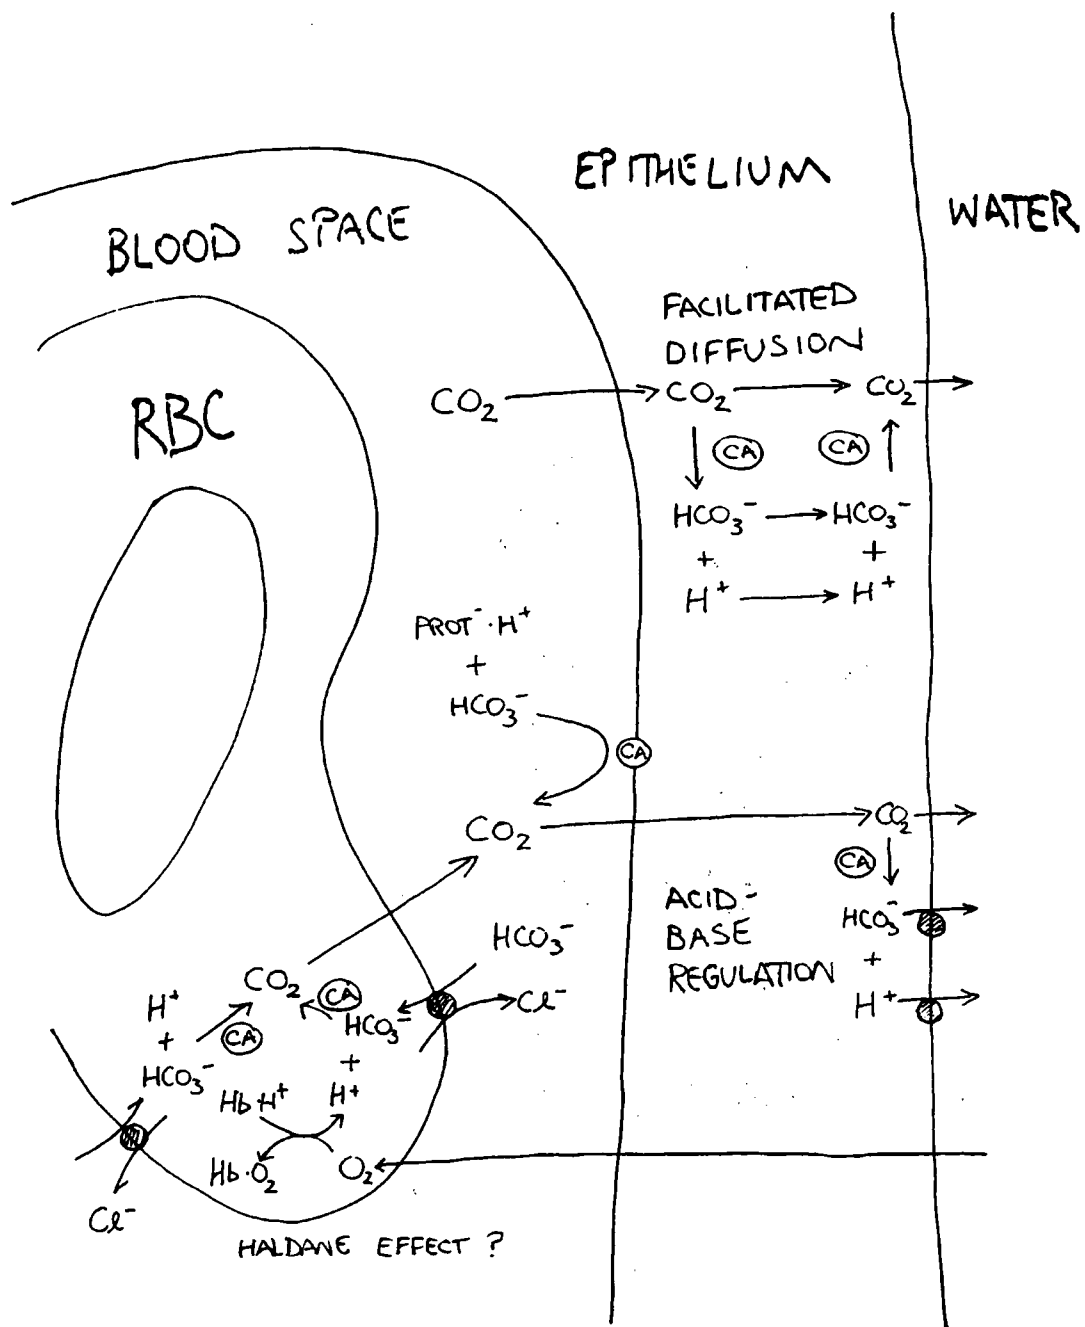 EPITHELIUM
WATER
BLOOD SPACE
FACILITATED
DIFFUSION
CO₂ CO₂ CO₂
RBC
CA CA
HCO₃⁻ HCO₃⁻
+ +
H⁺ H⁺
PROT⁻·H⁺
+
HCO₃⁻
CA
CO₂ CO₂
CA
ACID-
BASE
REGULATION
HCO₃⁻
+
H⁺
HCO₃⁻
Cl⁻
CO₂ CA
H⁺
+
HCO₃⁻
CA
HCO₃⁻
+
H⁺
Hb·H⁺
Hb·O₂ O₂
Cl⁻
HALDANE EFFECT ?